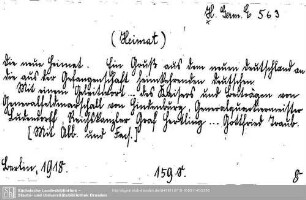 H. Germ. C 563
(Heimat)
Die neue Heimat. Ein Gruß aus dem neuen Deutschland an
die aus der Gefangenschaft heimkehrenden Deutschen
Mit einem Geleitwort ... des Kaisers und Beiträgen von
Generalfeldmarschall von Hindenburg, Generalquartiermeister
Ludendorff, Reichskanzler Graf Hertling ... Gottfried Traub.
[Mit Abb. und Facs.]
Berlin, 1918. 159 S. 8